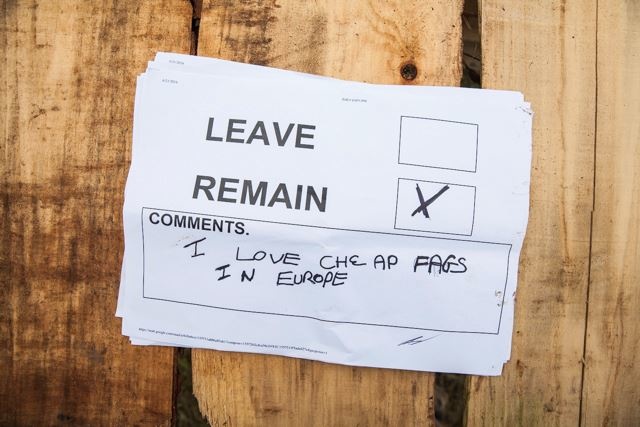 LEAVE
REMAIN
COMMENTS.
I LOVE CHEAP FAGS
IN EUROPE